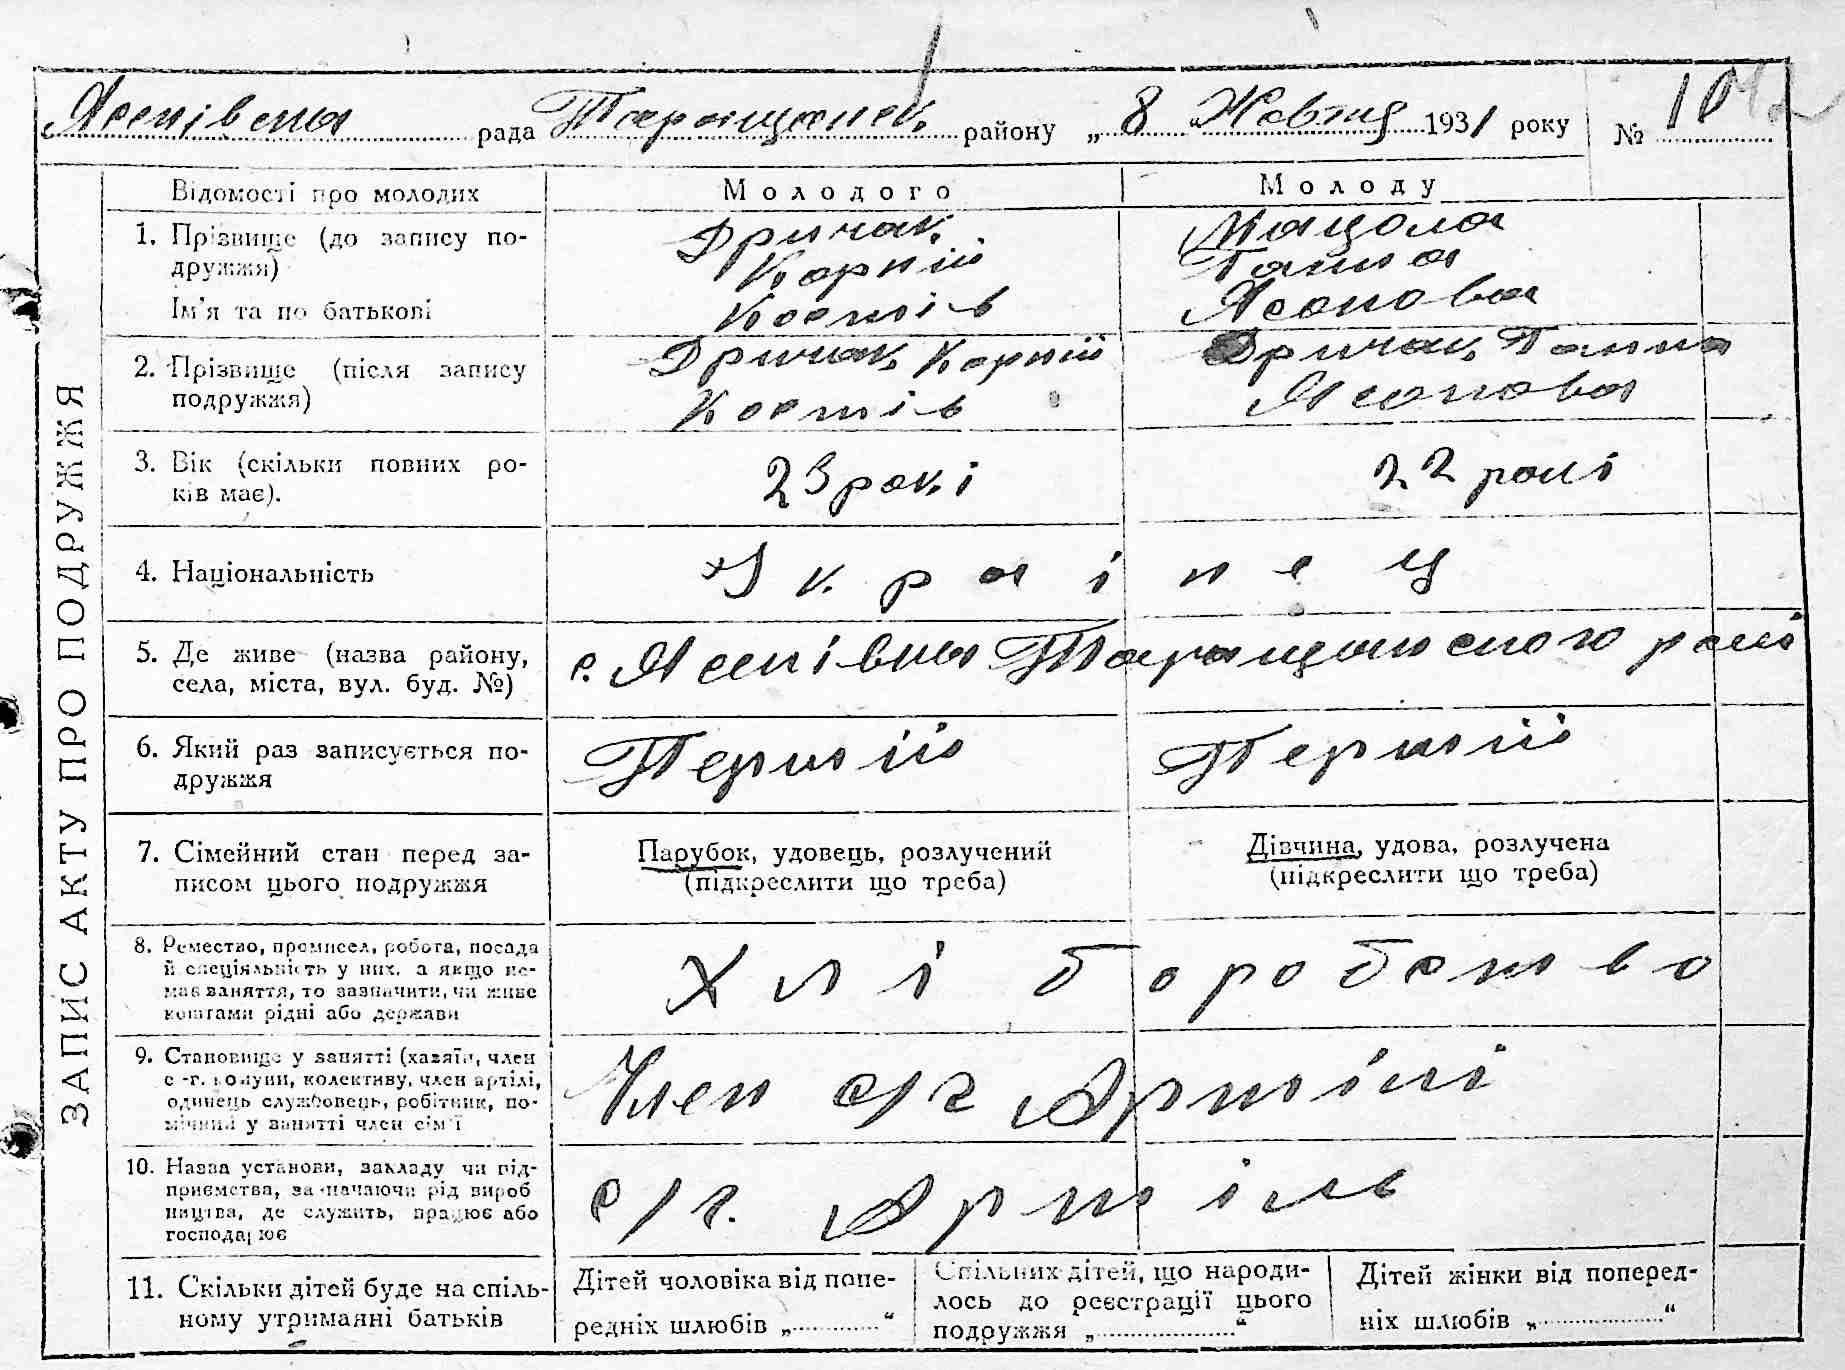 Лісківська рада Таращанськ району „ 8 Жовтня 1931 року № 10
ЗАПИС АКТУ ПРО ПОДРУЖЖЯ
Відомості про молодих Молодого Молоду
1. Прізвище (до запису по-
дружжя)
Ім'я та по батькові
Дричак
Корній
Костів
Мацола
Ганна
Ясонова
2. Прізвище (після запису
подружжя)
Дричак Корній
Костів
Дричак Ганна
Ясонова
3. Вік (скільки повних ро-
ків має).
23 рокі
22 рокі
4. Національність
Українец
5. Де живе (назва району,
села, міста, вул. буд. №)
с. Таращанського
6. Який раз записується по-
дружжя
Перший
Перший
7. Сімейний стан перед за-
писом цього подружжя
Парубок, удовець, розлучений
(підкреслити що треба)
Дівчина, удова, розлучена
(підкреслити що треба)
8. Ремество, промисел, робота, посада
й спеціяльність у них, а якщо не-
має заняття, то зазначити, чи живе
коштами рідні або держави
Хліборобство
9. Становище у занятті (хазяїн, член
с.-г. комуни, колективу, член артілі,
одинець службовець, робітник, по-
мічний у занятті член сім'ї
Член с/г Артілі
10. Назва установи, закладу чи під-
приємства, зазначаючи рід вироб
ництва, де служить, працює або
господарює
с/г. Артіль
11. Скільки дітей буде на спіль-
ному утриманні батьків
Дітей чоловіка від попе-
редніх шлюбів „ “
Спільних дітей, що народи-
лось до реєстрації цього
подружжя „ “
Дітей жінки від поперед-
ніх шлюбів „ “